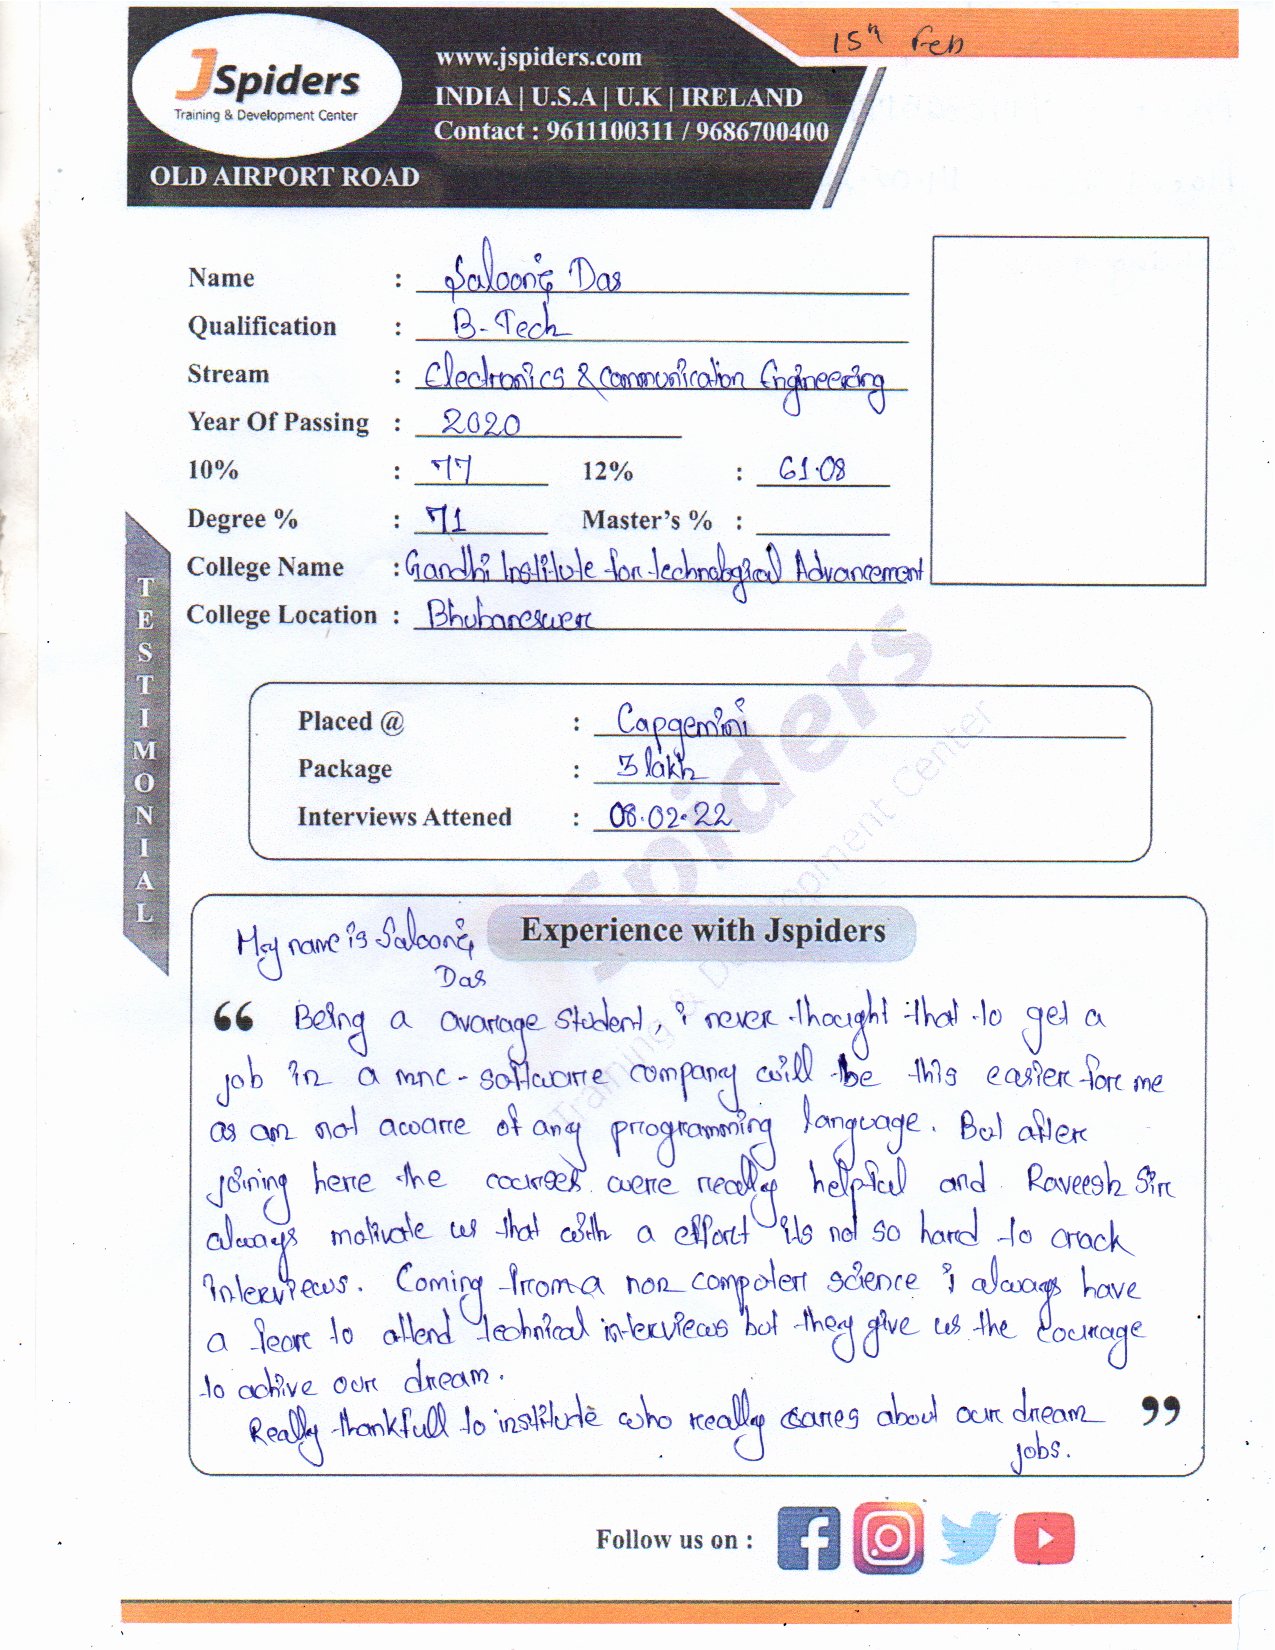 15th Feb
JSpiders
Training & Development Center
www.jspiders.com
INDIA | U.S.A | U.K | IRELAND
Contact : 9611100311 / 9686700400
OLD AIRPORT ROAD
Name : Saloani Das
Qualification : B-Tech
Stream : Electronics & Communication Engineering
Year Of Passing : 2020
10% : 77 12% : 61.08
Degree % : 71 Master's % :
College Name : Gandhi Institute for technological Advancement
College Location : Bhubaneswer
TESTIMONIAL
Placed @ : Capgemini
Package : 3 lakh
Interviews Attened : 08.02.22
Spiders
Training & Development Center
Experience with Jspiders
My name is Saloani
Das
“ Being a avarage student, i never thought that to get a
job in a mnc - software company will be this easier for me
as am not aware of any programming language. But after
joining here the courses were really helpful and Raveesh Sir
always motivate us that with a effort its not so hard to crack
interviews. Coming from a non computer science i always have
a fear to attend technical interviews but they give us the courage
to achive our dream.
Really thankfull to institute who really cares about our dream ”
jobs.
Follow us on :